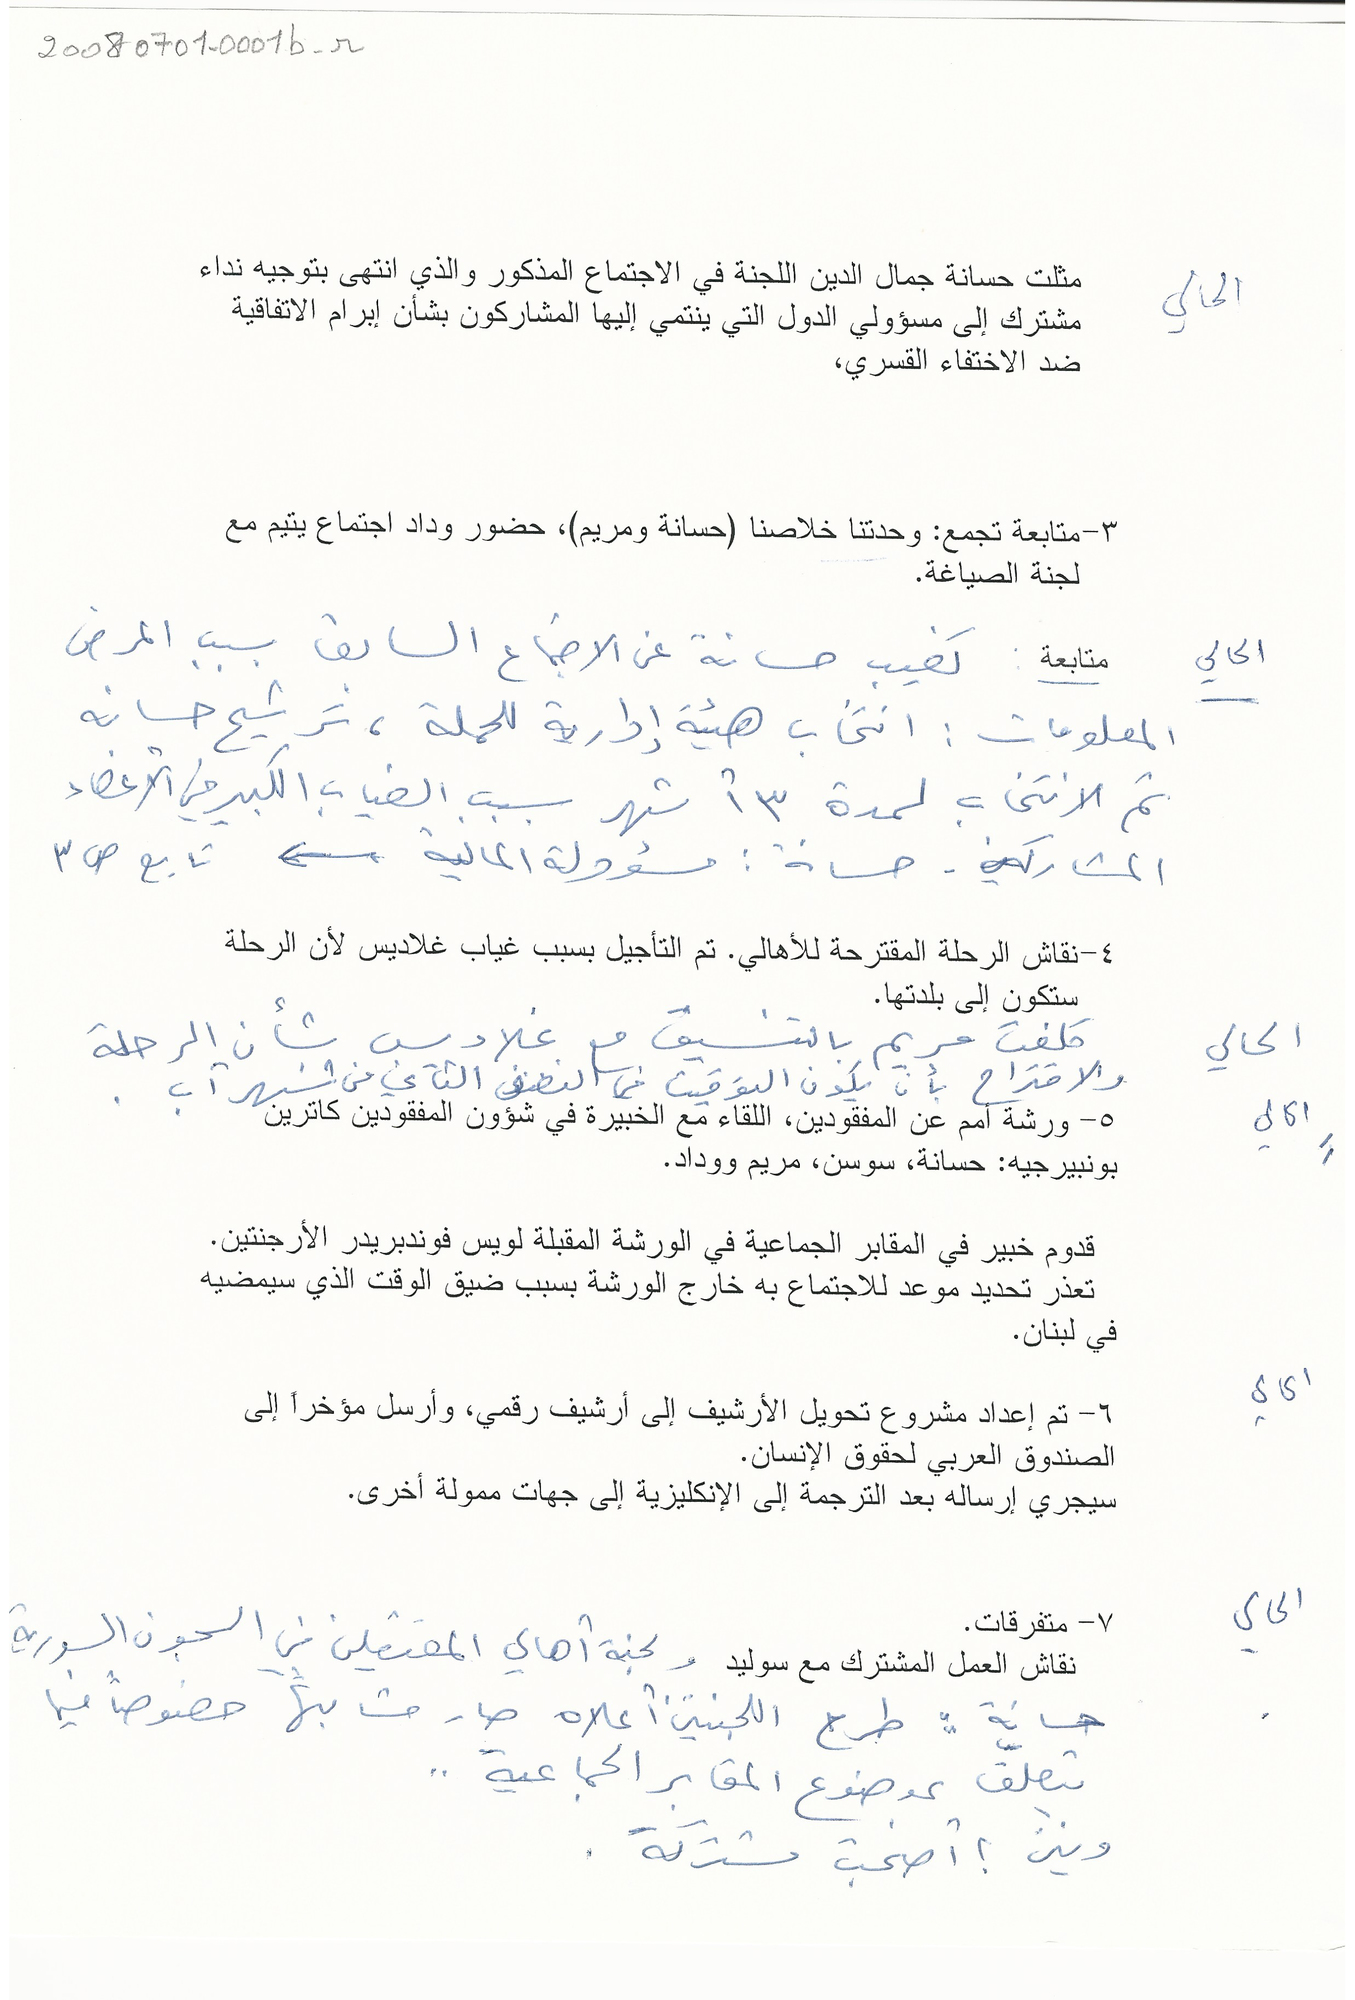 20080701-0001b-r
الحالي
مثلت حسانة جمال الدين اللجنة في الاجتماع المذكور والذي انتهى بتوجيه نداء
مشترك إلى مسؤولي الدول التي ينتمي إليها المشاركون بشأن إبرام الاتفاقية
ضد الاختفاء القسري،
٣-متابعة تجمع: وحدتنا خلاصنا (حسانة ومريم)، حضور وداد اجتماع يتيم مع
لجنة الصياغة.
الحالي
متابعة : تغيب حسانة عن الاجتماع السابق بسبب المرض
المعلومات : انتخاب هيئة إدارية للحملة ، ترشيح حسانة
تم الانتخاب لمدة ٣ أشهر بسبب الغياب الكبير في الأعضاء
المشاركين - حسانة : مسؤولة المالية ← تابع ص ٣
٤-نقاش الرحلة المقترحة للأهالي. تم التأجيل بسبب غياب غلاديس لأن الرحلة
ستكون إلى بلدتها.
الحالي
كلفت مريم بالتنسيق مع غلاديس بشأن الرحلة
والاقتراح بأن يكون التوقيت في النصف الثاني من شهر آب .
الحالي
٥- ورشة أمم عن المفقودين، اللقاء مع الخبيرة في شؤون المفقودين كاترين
بونبيرجيه: حسانة، سوسن، مريم ووداد.
قدوم خبير في المقابر الجماعية في الورشة المقبلة لويس فوندبريدر الأرجنتين.
تعذر تحديد موعد للاجتماع به خارج الورشة بسبب ضيق الوقت الذي سيمضيه
في لبنان.
الحالي
٦- تم إعداد مشروع تحويل الأرشيف إلى أرشيف رقمي، وأرسل مؤخراً إلى
الصندوق العربي لحقوق الإنسان.
سيجري إرساله بعد الترجمة إلى الإنكليزية إلى جهات ممولة أخرى.
الحالي
٧- متفرقات.
نقاش العمل المشترك مع سوليد و لجنة أهالي المعتقلين في السجون السورية
حسانة : طرح اللجنتين أعلاه صار متشابهاً خصوصاً فيما
يتعلق بموضوع المقابر الجماعية ..
أصبحت مشتركة .